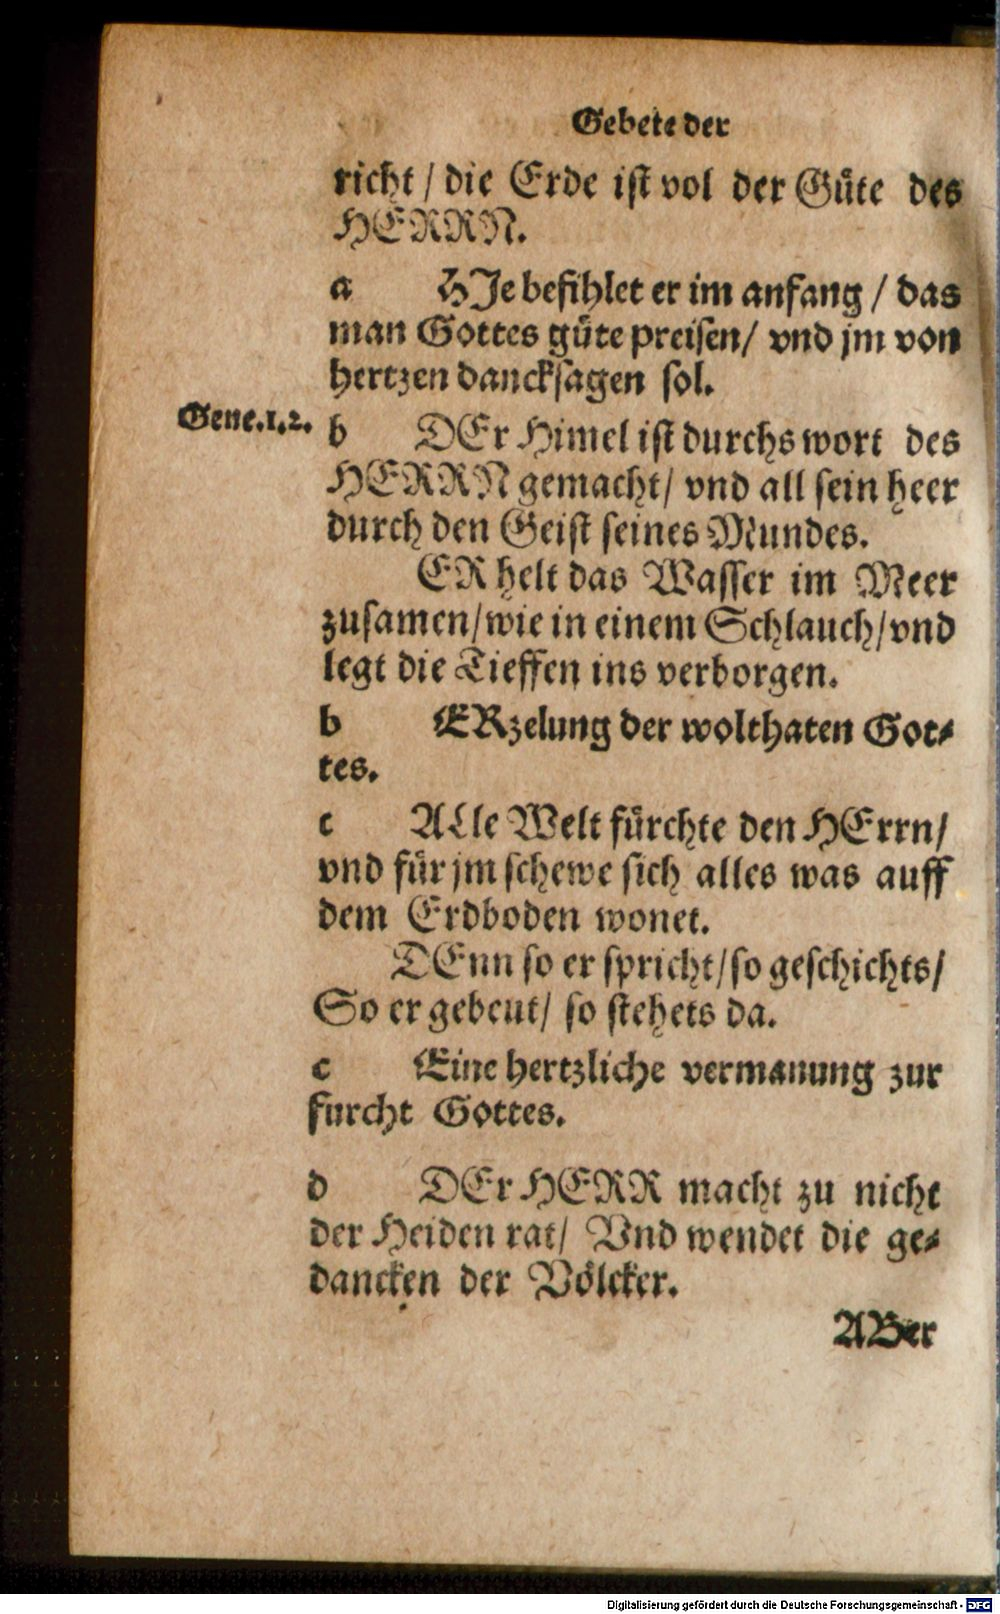 Gebete der
richt / die Erde ist vol der Güte des
HERRN.
a HJe befihlet er im anfang / das
man Gottes güte preisen/ vnd jm von
hertzen dancksagen sol.
Gene.1.2.
b DEr Himel ist durchs wort des
HERRN gemacht/ vnd all sein heer
durch den Geist seines Mundes.
ER helt das Wasser im Meer
zusamen/wie in einem Schlauch/vnd
legt die Tieffen ins verborgen.
b ERzelung der wolthaten Got-
tes.
c ALle Welt fürchte den HErrn/
vnd für jm schewe sich alles was auff
dem Erdboden wonet.
DEnn so er spricht/so geschichts/
So er gebeut/ so stehets da.
c Eine hertzliche vermanung zur
furcht Gottes.
d DEr HERR macht zu nicht
der Heiden rat/ Vnd wendet die ge-
dancken der Völcker.
ABer
Digitalisierung gefördert durch die Deutsche Forschungsgemeinschaft - DFG